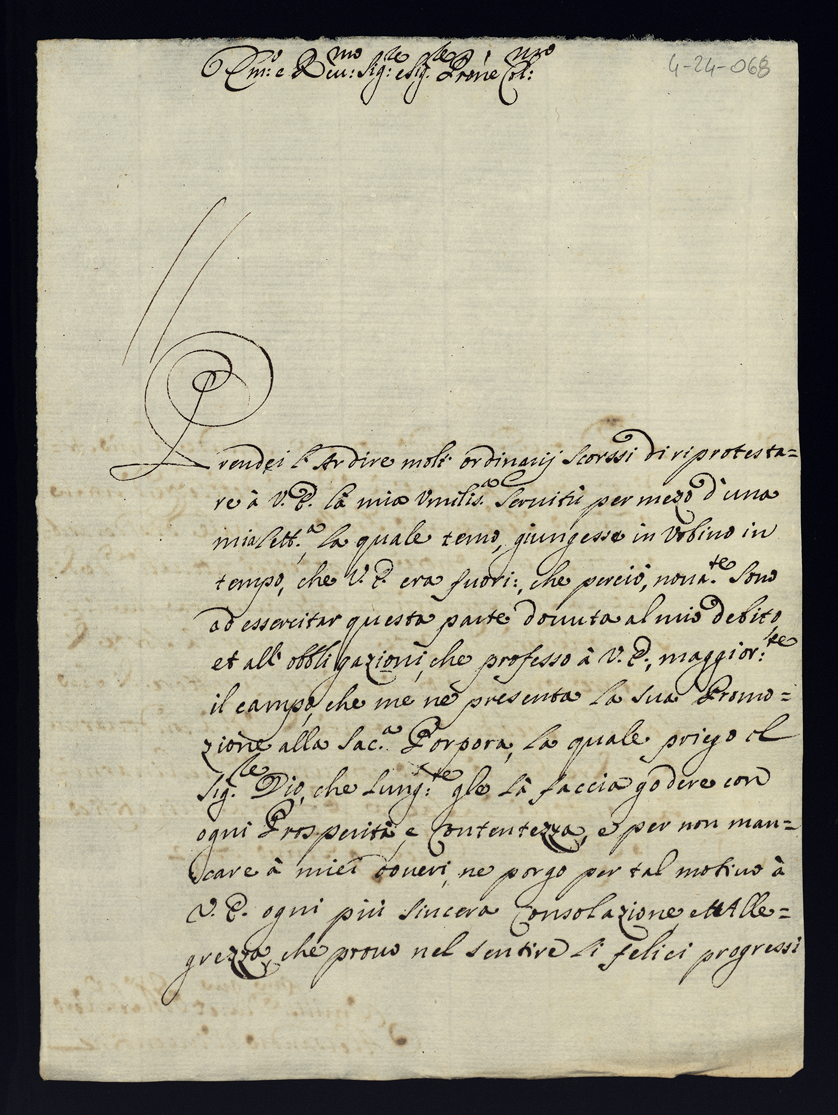 Em:o e Reu:mo Sig:re e Sig.re Prone Col:mo
4-24-068
Prendei l'Ardire molti ordinarij scorssi di riprotesta=
re à V. E. la mia Vmilis.a Seruitù per mezo d'una
mia lett.a, la quale temo, giungesse in Vrbino in
tempo, che V. E. era fuori:, che perciò, nou.te Sono
ad essercitar questa parte douuta al mio debito,
et all' obbligazioni, che professo à V. E., maggior:te
il campo, che me ne presenta la sua Promo=
zione alla Sac.a Porpora, la quale priego el
Sig.re Dio, che lung:te gle la faccia godere con
ogni Prosperità, e Contentezza, e per non man=
care à miei doueri, ne porgo per tal motiuo à
V. E. ogni più sincera Consolazione, et Alle=
grezza, che prouo nel sentire li felici progressi